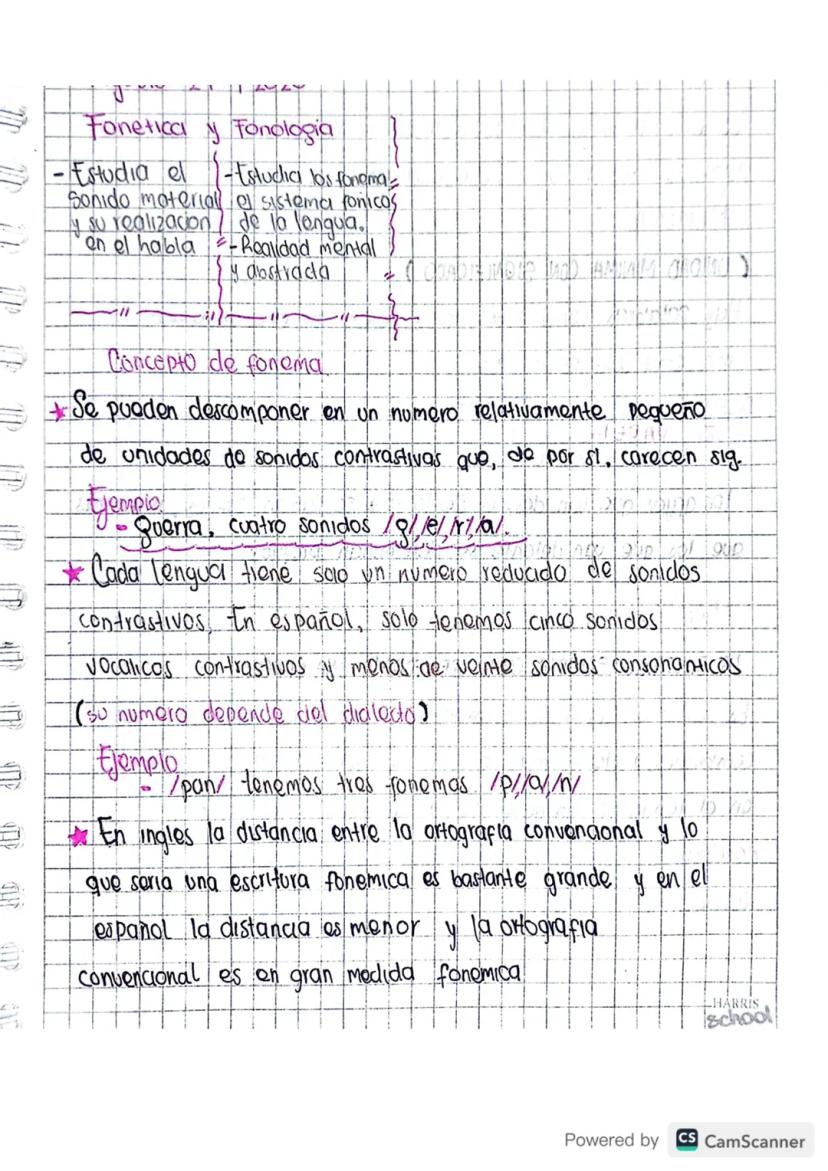 Fonetica y Fonologia
- Estudia el
sonido material
y su realizacion
en el habla
- Estudia los fonemas
el sistema fonico
de la lengua.
- Realidad mental
y abstrada
Concepto de fonema
Se pueden descomponer en un numero relativamente pequeño
de unidades de sonidos contrastivas que, de por si, carecen sig.
Ejemplo
- guerra, cuatro sonidos /g/,/e/,/r/,/a/.
Cada lengua tiene solo un numero reducido de sonidos
contrastivos, En español, solo tenemos cinco sonidos
vocalicos contrastivos y menos de veinte sonidos consonanticos
(su numero depende del dialecto)
Ejemplo
- /pan/ tenemos tres fonemas /p/,/a/,/n/
En ingles la distancia entre la ortografia convencional y lo
que seria una escritura fonemica es bastante grande y en el
español la distancia es menor y la ortografia
convencional es en gran medida fonemica
HARRIS
school
Powered by CS CamScanner